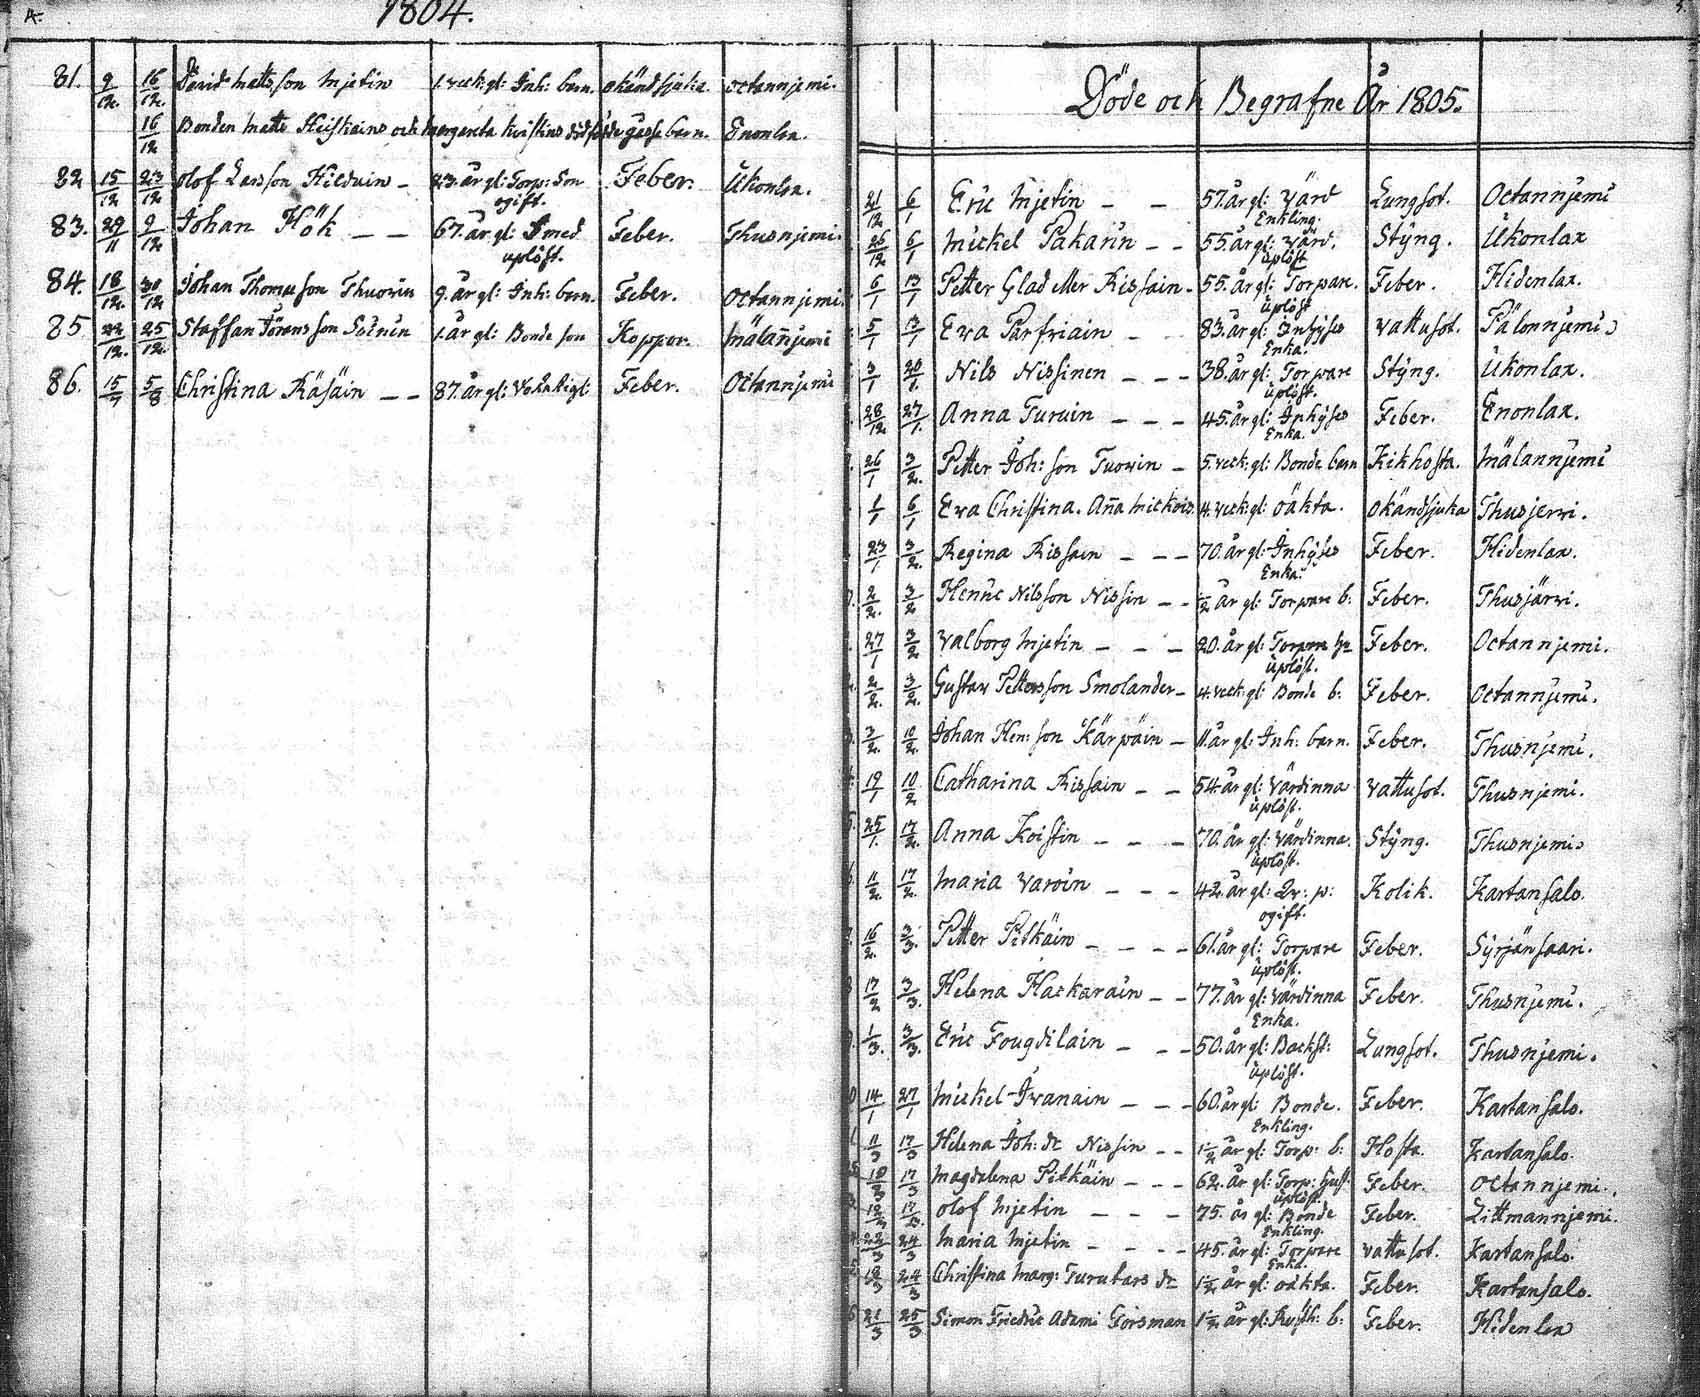 4.
1804.
81. 9/12. 16/12. David Mattsson Mjetin 1. veck: gl: Inh: barn. okänd sjuka. Octannjemi.
16/12 Bonden Matts Heiskains och Margareta Kristins dödfödde gosse barn. Enonlax.
82 15/12 23/12 Olof Larsson Hilduin – 23. år gl: Torp: Son Feber. Ukonlax.
ogift.
83. 29/11 9/12 Johan Hök – – 67. år gl: Smed Feber. Thusnjemi.
uplöst.
84. 18/12. 30/12 Johan Thomasson Thuorin 9. år gl: Inh: barn. Feber. Octannjemi.
85 22/12. 25/12. Staffan Göransson Suinin 1. år gl: Bonde son Koppor. Mälannjemi
86. 15/7 5/8 Christina Räsäin – – 87. år gl: Feber. Octannjemi
5.
Döde och Begrafne År 1805.
21/12 6/1 Eric Mjetin – – 57. år gl: Värd Lungsot. Octannjemi
Enkling.
26/12 6/1 Mickel Pakarin – – 55 år gl: Värd. Stÿng. Ukonlax
uplöst
6/1 13/1 Petter Glad eller Rissain – 55. år gl: Torpare. Feber. Hidenlax.
uplöst
5/1 13/1 Eva Parfriain – – 83. år gl: Inhÿses Vattusot. Pälonnjemi
Enka.
3/1 20/1. Nils Nissinen – – – 38. år gl: Torpare Stÿng. Ukonlax.
uplöst.
28/12 27/1. Anna Turuin – – – 45. år gl: Inhÿses Feber. Enonlax.
Enka.
26/1 3/2. Petter Joh: son Tuorin – 5. veck: gl: Bonde barn Kikhosta. Mälannjemi
1/1 6/1 Eva Christina. Aña Mickois 4. veck: gl: oäkta. okändsjuka Thusjervi.
23/1 3/2. Regina Rissain – – – 70. år gl: Inhÿses Feber. Hidenlax.
Enka.
2/2. 3/2 Henric Nilsson Nissin – – 1/2 år gl: Torpare b: Feber. Thusjärvi.
27/1 3/2 Valborg Mjetin – – – 20. år gl: Torpare Feber. Octannjemi.
uplöst.
2/2. 3/2. Gustav Pettersson Smolander – 4. veck: gl: Bonde b: Feber. Octannjemi.
3/2. 10/2. Johan Hen: son Kärpäin – 11. år gl: Inh: barn. Feber. Thusnjemi.
19/1 10/2 Catharina Rissain – – 54 år gl: Värdinna Vattusot. Thusnjemi.
uplöst.
25/1. 17/2. Anna Koistin – – – 70. år gl: Värdinna. Stÿng. Thusnjemi.
uplöst.
11/2. 17/2. Maria Varoin – – – 42. år gl: Qv: p: Kolik. Kartansalo.
ogift.
16/2. 3/3. Petter Pitkäin – – – – 61. år gl: Torpare Feber. Sÿrjänsaari.
uplöst.
17/2 3/3. Helena Hackarain – – 77. år gl: Värdinna Feber. Thusnjemi.
Enka.
1/3. 3/3. Eric Fougdilain – – – 50. år gl: Backst: Lungsot. Thusnjemi.
uplöst.
14/1 27/1 Mickel Ivanain – – – 60. år gl: Bonde. Feber. Kartansalo.
Enkling.
11/3 17/3 Helena Joh: dr Nissin – – 1 1/2 år gl: Torp: b: Hosta. Kartansalo.
10/3 17/3 Magdalena Pitkäin – – – 62. år gl: Torp: hust: Feber. Octannjemi.
uplöst.
12/3 17/3. Olof Mjetin – – – 75. år gl: Bonde Feber. Littmannjemi.
Enkling.
22/3 24/3 Maria Mjetin – – – – 45. år gl: Torpare Vattusot. Kartansalo.
Enka.
18/3 24/3 Christina Marg: Turutars dr 1 1/2 år gl: oäkta. Feber. Kartansalo.
21/3 25/3 Simon Friedric Adami Forsman 1 1/2 år gl: Rusth: b: Feber. Hidenlax